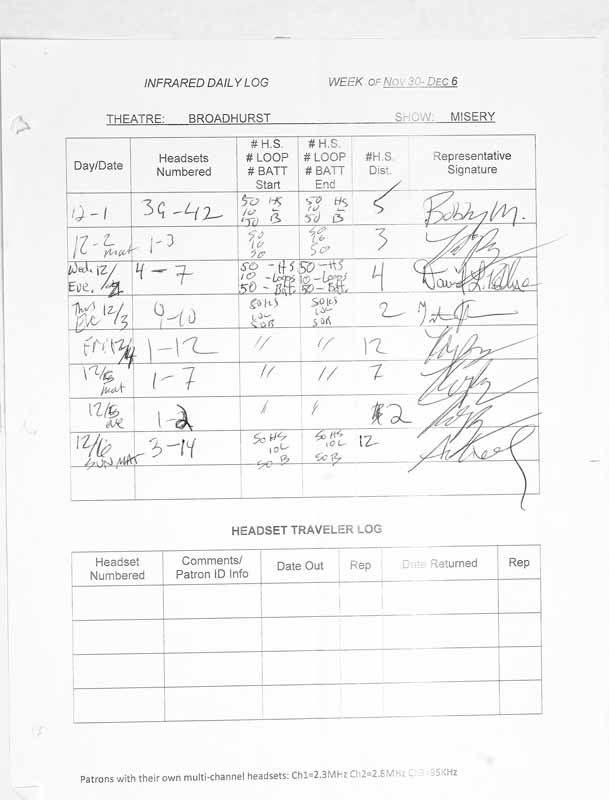 INFRARED DAILY LOG WEEK OF NOV 30- DEC 6
THEATRE: BROADHURST SHOW: MISERY
Day/Date Headsets Numbered # H.S. # LOOP # BATT Start # H.S. # LOOP # BATT End #H.S. Dist. Representative Signature
12-1 39-42 50 HS 10 L 50 B 50 HS 10 L 50 B 5 Bobby M.
12-2 mat 1-3 50 10 50 50 10 50 3
Wed. 12/2 Eve. 4-7 50-HS 10-Loops 50-Batt 50-HS 10-Loops 50-Batt 4 David L.
Thus Eve 12/3 9-10 50HS 10L 50B 50HS 10L 50B 2
FRI 12/4 1-12 " " 12
12/5 mat 1-7 " " 7
12/5 eve 1-2 " " 2
12/6 SUN MAT 3-14 50 HS 10L 50 B 50 HS 10L 50 B 12
HEADSET TRAVELER LOG
Headset Numbered Comments/ Patron ID Info Date Out Rep Date Returned Rep
Patrons with their own multi-channel headsets: Ch1=2.3MHz Ch2=2.8MHz Ch3=95KHz